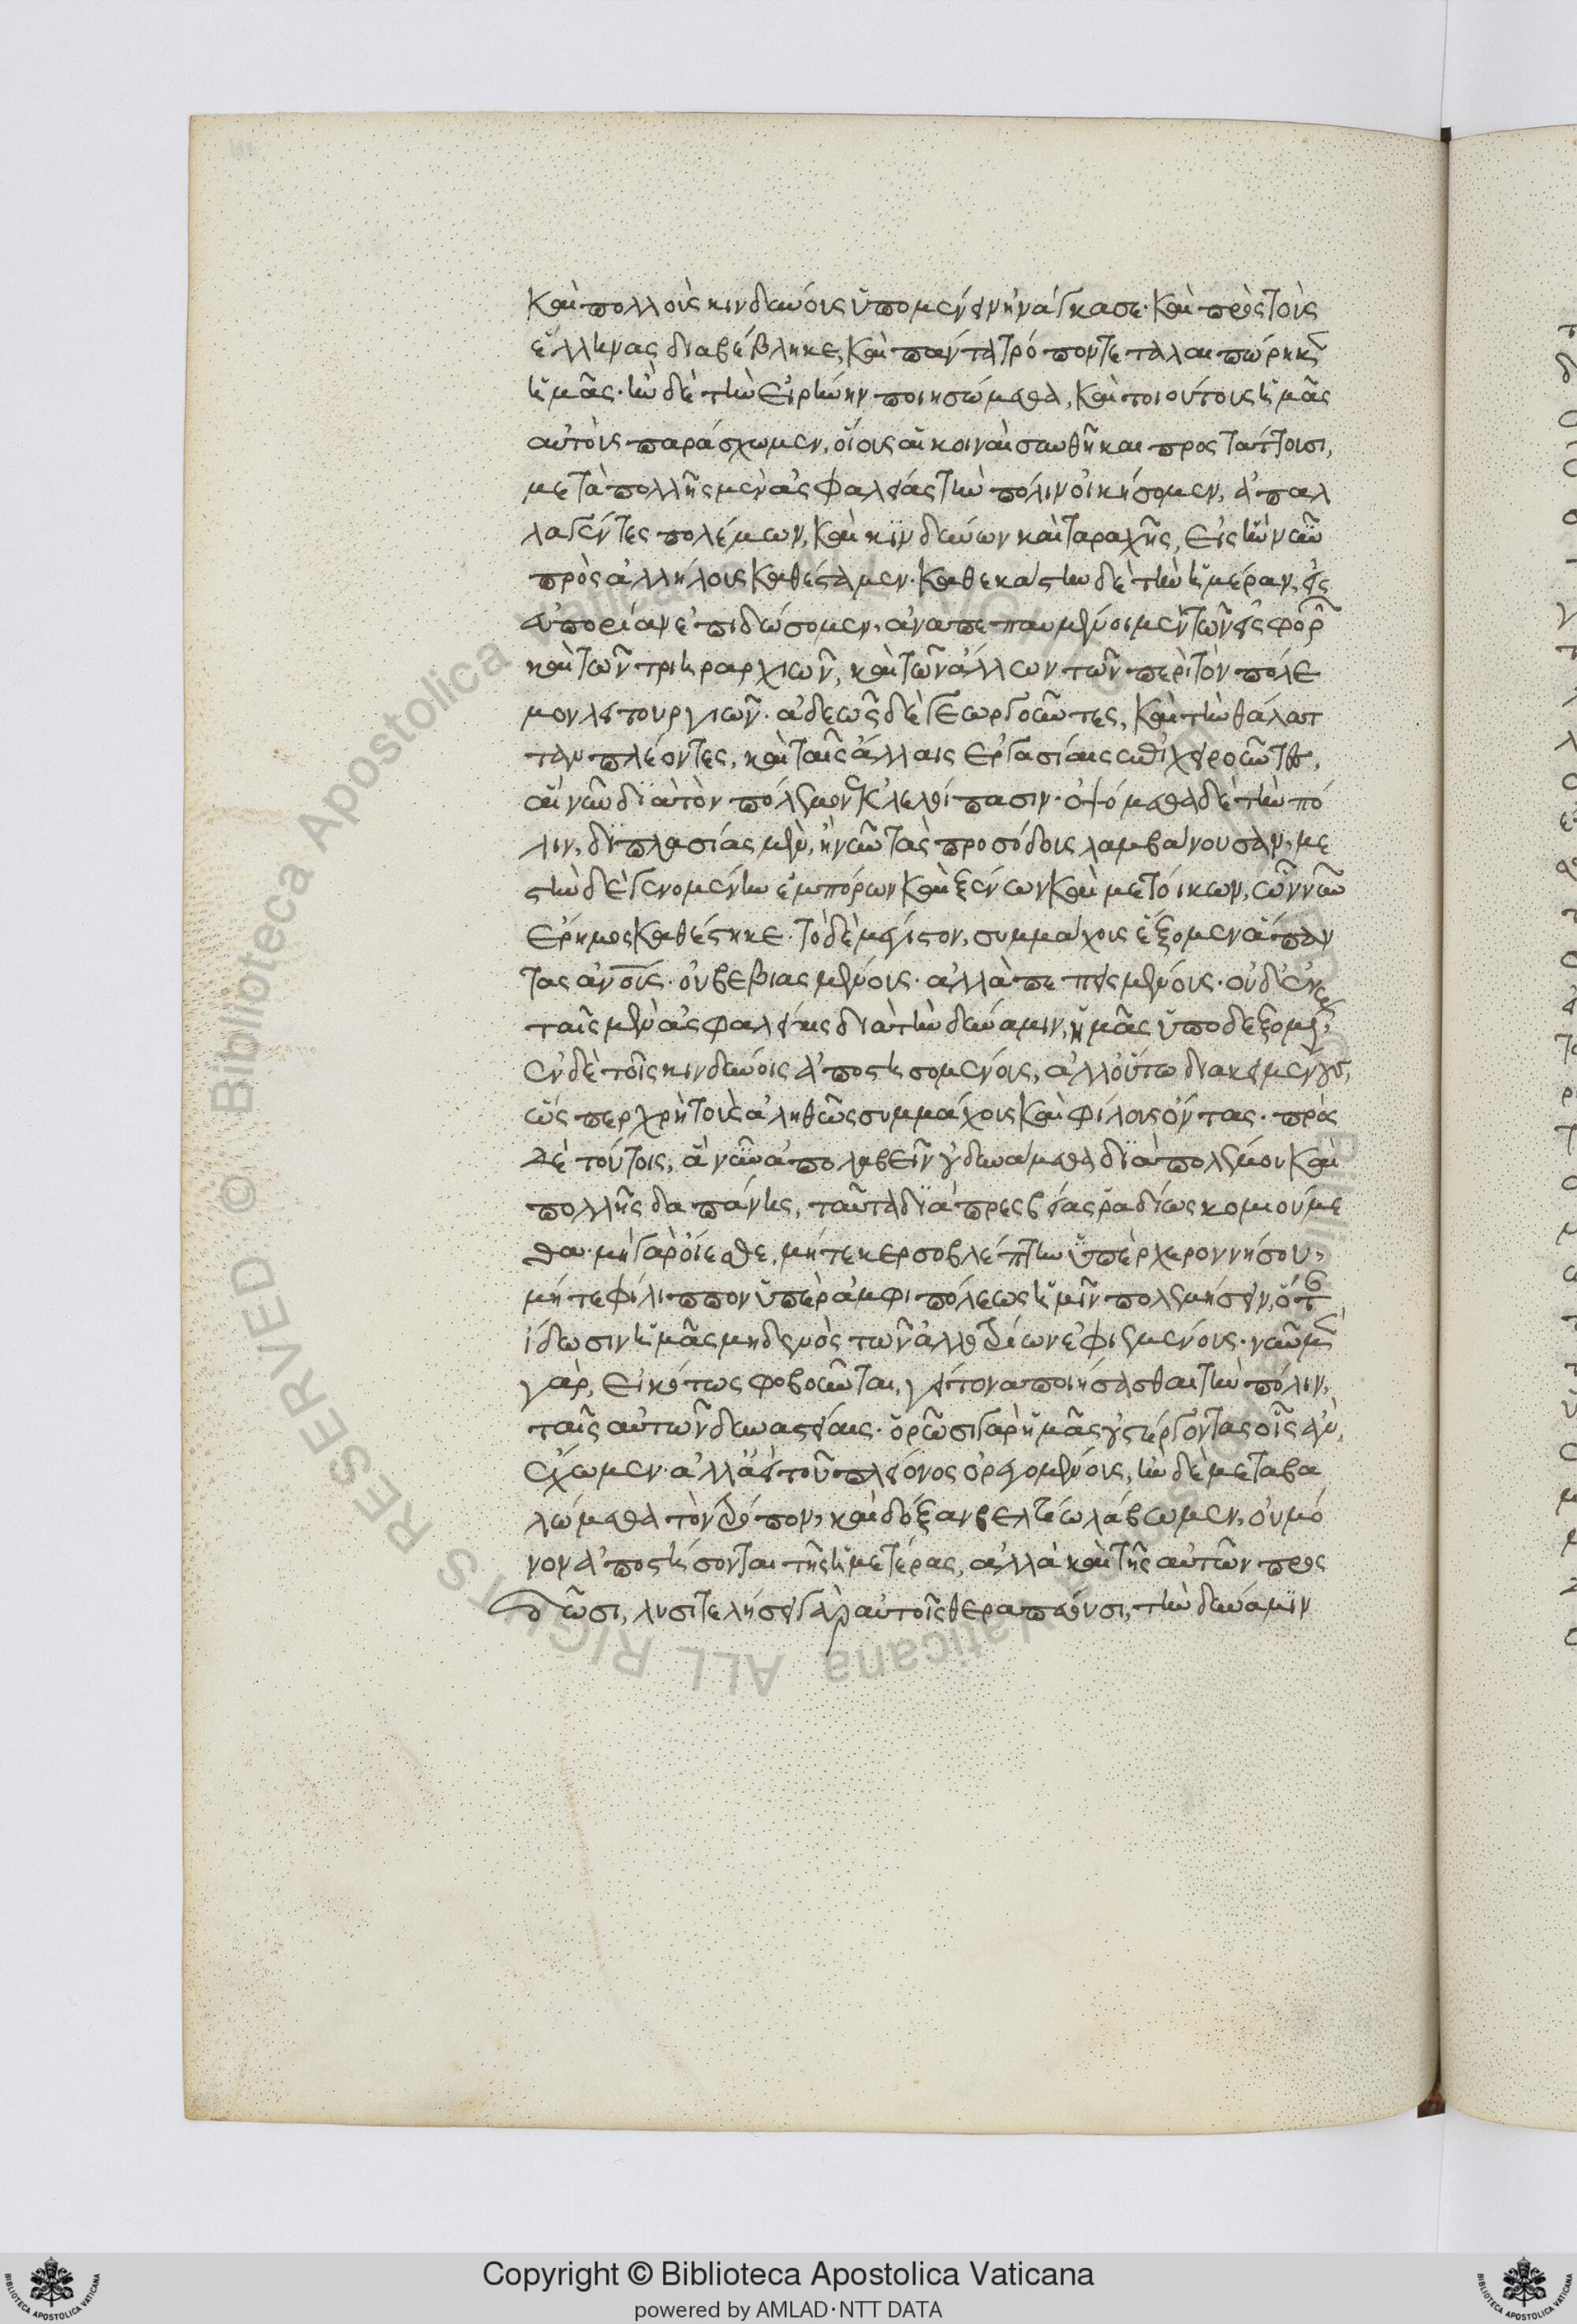 καὶ πολλοὺς κινδύνους ὑπομένειν ἠνάγκασε· καὶ πρὸς τοὺς
ἕλληνας διαβέβληκε, καὶ πάντα τρόπον τεταλαιπώρηκεν
ἡμᾶς· ἢν δὲ τὴν εἰρήνην ποιησώμεθα, καὶ τοιούτους ἡμᾶς
αὐτοὺς παράσχωμεν, οἵους αἱ κοιναὶ συνθῆκαι προστάττουσι,
μετὰ πολλῆς μὲν ἀσφαλείας τὴν πόλιν οἰκήσομεν, ἀπαλ
λαγέντες πολέμων, καὶ κινδύνων καὶ ταραχῆς, εἰς ἣν νῦν
πρὸς ἀλλήλους καθέσταμεν· καθ ἑκάστην δὲ τὴν ἡμέραν, εἰς
εὐπορίαν ἐπιδώσομεν, ἀναπεπαυμένοι μὲν τῶν εἰσφορῶν
καὶ τῶν τριηραρχιῶν, καὶ τῶν ἄλλων τῶν περὶ τὸν πόλε
μον λειτουργιῶν· ἀδεῶς δὲ γεωργοῦντες, καὶ τὴν θάλατ
ταν πλέοντες, καὶ ταῖς ἄλλαις ἐργασίαις ἐπιχειροῦντες,
αἳ νῦν διὰ τὸν πόλεμον ἐκλελοίπασιν· ὀψόμεθα δὲ τὴν πό
λιν, διπλασίας μὲν, ἢ νῦν τὰς προσόδους λαμβάνουσαν, με
στὴν δὲ γενομένην ἐμπόρων καὶ ξένων καὶ μετοίκων, ὧν νῦν
ἐρήμος καθέστηκε· τὸ δὲ μέγιστον, συμμάχους ἕξομεν ἅπαν
τας ἀνους· οὐ βεβιασμένους· ἀλλὰ πεπεισμένους· οὐδ ἐν μὲν
ταῖς μὲν ἀσφαλείαις διὰ τὴν δύναμιν, ἡμᾶς ὑποδεξομένους,
ἐν δὲ τοῖς κινδύνοις ἀποστησομένους, ἀλλ οὕτω διακειμένους,
ὥσπερ χρὴ τοὺς ἀληθῶς συμμάχους καὶ φίλους ὄντας· πρὸς
δὲ τούτοις, ἃ νῦν ἀπολαβεῖν οὐ δυνάμεθα διὰ πολέμου καὶ
πολλῆς δαπάνης, ταῦτα διὰ πρεσβείας ῥαδίως κομιούμε
θα· μὴ γὰρ οἴεσθε, μήτε κερσοβλέπτην ὑπὲρ χερρονήσου,
μήτε φίλιππον ὑπὲρ ἀμφιπόλεως ἡμῖν πολεμήσειν, ὅτ
ἴδωσιν ἡμᾶς μηδενὸς τῶν ἀλλοτρίων ἐφιεμένους· νῦν μὲν
γὰρ, εἰκότως φοβοῦνται, γείτονα ποιήσασθαι τὴν πόλιν,
ταῖς αὐτῶν δυναστείαις· ὁρῶσι γὰρ ἡμᾶς οὐ στέργοντας οἷς ἂν
ἔχωμεν· ἀλλ ἀεὶ τοῦ πλείονος ὀρεγομένους, ἢν δὲ μεταβα
λώμεθα τὸν τρόπον, καὶ δόξαν βελτίω λάβωμεν, οὐ μό
νον ἀποστήσονται τῆς ἡμετέρας, ἀλλὰ καὶ τῆς αὐτῶν προς
δῶσι, λυσιτελήσει γὰρ αὐτοῖς θεραπεύουσι, τὴν δύναμιν
Copyright © Biblioteca Apostolica Vaticana
powered by AMLAD·NTT DATA